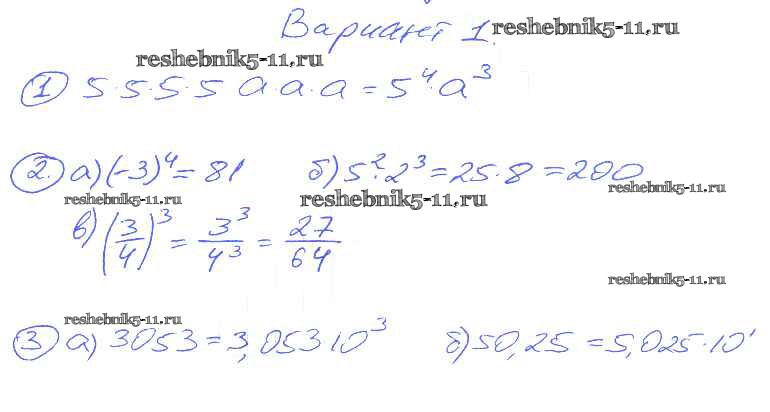 Вариант 1. reshebnik5-11.ru
reshebnik5-11.ru
1) 5·5·5·5 a·a·a = 5⁴·a³
2. а) (-3)⁴ = 81 б) 5²·2³ = 25·8 = 200
reshebnik5-11.ru reshebnik5-11.ru reshebnik5-11.ru
в) (3/4)³ = 3³/4³ = 27/64
reshebnik5-11.ru
reshebnik5-11.ru
3) а) 3053 = 3,053·10³ б) 50,25 = 5,025·10¹